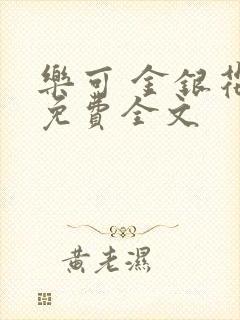 樂可 金銀花
免費全文
黃老濕